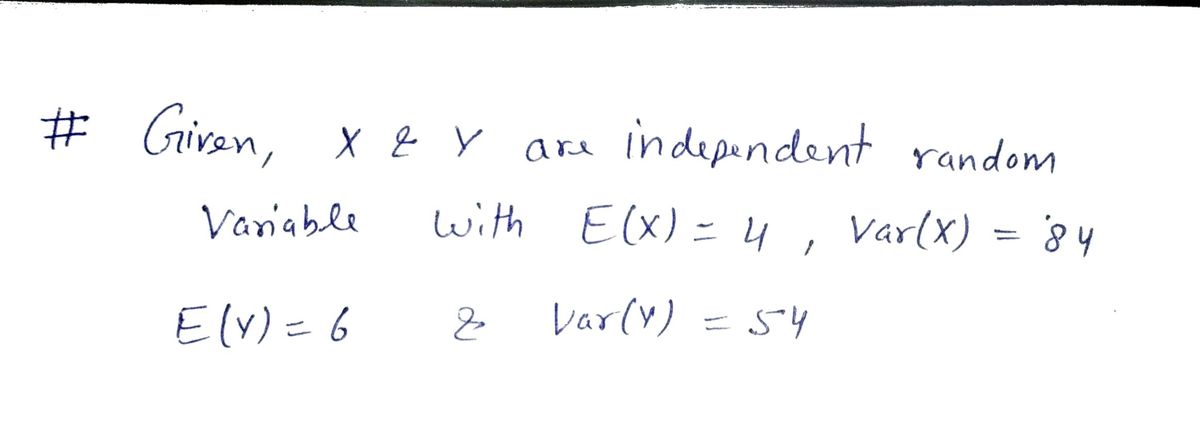 # Given, X & Y are independent random
Variable with E(X) = 4, Var(X) = 84
E(Y) = 6 & Var(Y) = 54